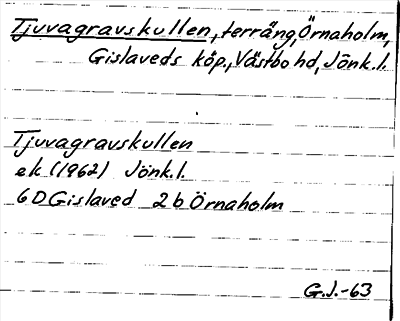 Tjuvagravskullen, terräng, Örnaholm,
Gislaveds köp., Västbo hd, Jönk.l.
Tjuvagravskullen
ek (1962) Jönk.l.
6D Gislaved 2b Örnaholm
G.J.-63